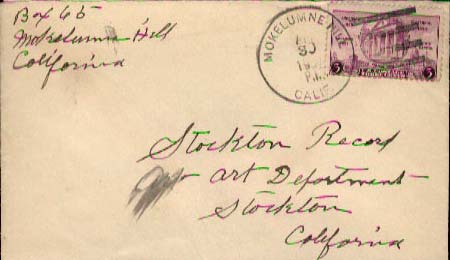 Box 65
Mokelumne Hill
California
MOKELUMNE HILL
30
P.M.
CALIF.
3 3
Stockton Record
Art Department
Stockton
California